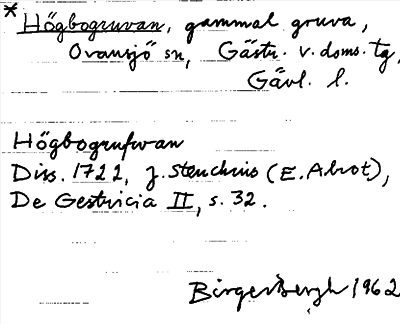 * Högbogruvan, gammal gruva,
Ovansjö sn, Gästr. v. doms. tg,
Gävl. l.
Högbogrufwan
Diss. 1722, J. Stenchius (E. Alrot),
De Gestricia II, s. 32.
Birger Bergh 1962